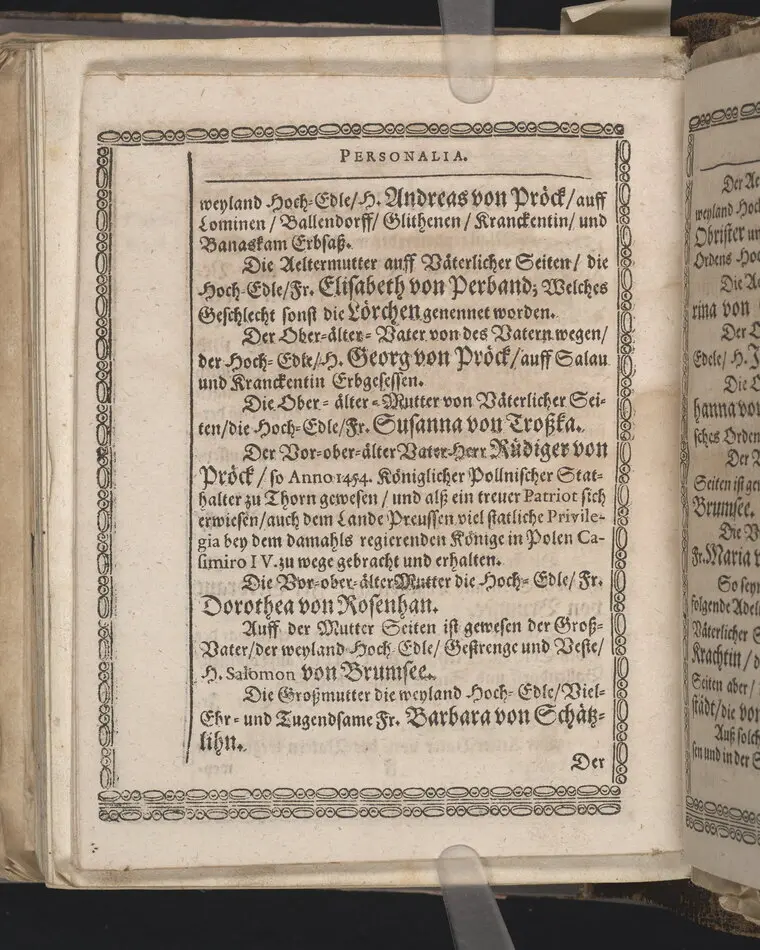 PERSONALIA.
weyland Hoch-Edle/H. Andreas von Pröck/auff
Lominen / Ballendorff/ Glithenen / Kranckentin/ und
Banaskam Erbsaß.
Die Aeltermutter auff Väterlicher Seiten/ die
Hoch-Edle/Fr. Elisabeth von Perband; Welches
Geschlecht sonst die Lörchen genennet worden.
Der Ober-älter-Vater von des Vatern wegen/
der Hoch-Edle/H. Georg von Pröck/auff Salau
und Kranckentin Erbgesessen.
Die Ober-älter-Mutter von Väterlicher Sei-
ten/die Hoch-Edle/Fr. Susanna von Troßka.
Der Vor-ober-älter Vater Herr Rüdiger von
Pröck / so Anno 1454. Königlicher Pollnischer Stat-
halter zu Thorn gewesen / und alß ein treuer Patriot sich
erwiesen/auch dem Lande Preussen viel statliche Privile-
gia bey dem damahls regierenden Könige in Polen Ca-
simiro IV. zu wege gebracht und erhalten.
Die Vor-ober-älter Mutter die Hoch-Edle/ Fr.
Dorothea von Rosenhan.
Auff der Mutter Seiten ist gewesen der Groß-
Vater/der weyland Hoch Edle/ Gestrenge und Veste/
H. Salomon von Brumsee.
Die Großmutter die weyland Hoch-Edle/Viel-
Ehr- und Tugendsame Fr. Barbara von Schätz-
lihn.
Der
weyland Hoch
Obrister un
Ordens Hoc
rina von
Der O
Edele/ H. J
Die O
hanna vo
sches Orden
Der V
Seiten ist ge
Brumsee.
Die V
Fr. Maria v
So seyn
folgende Adel
Väterlicher S
Krachtin / d
Seiten aber/
städt/die von
Auß solch
sen und in der S